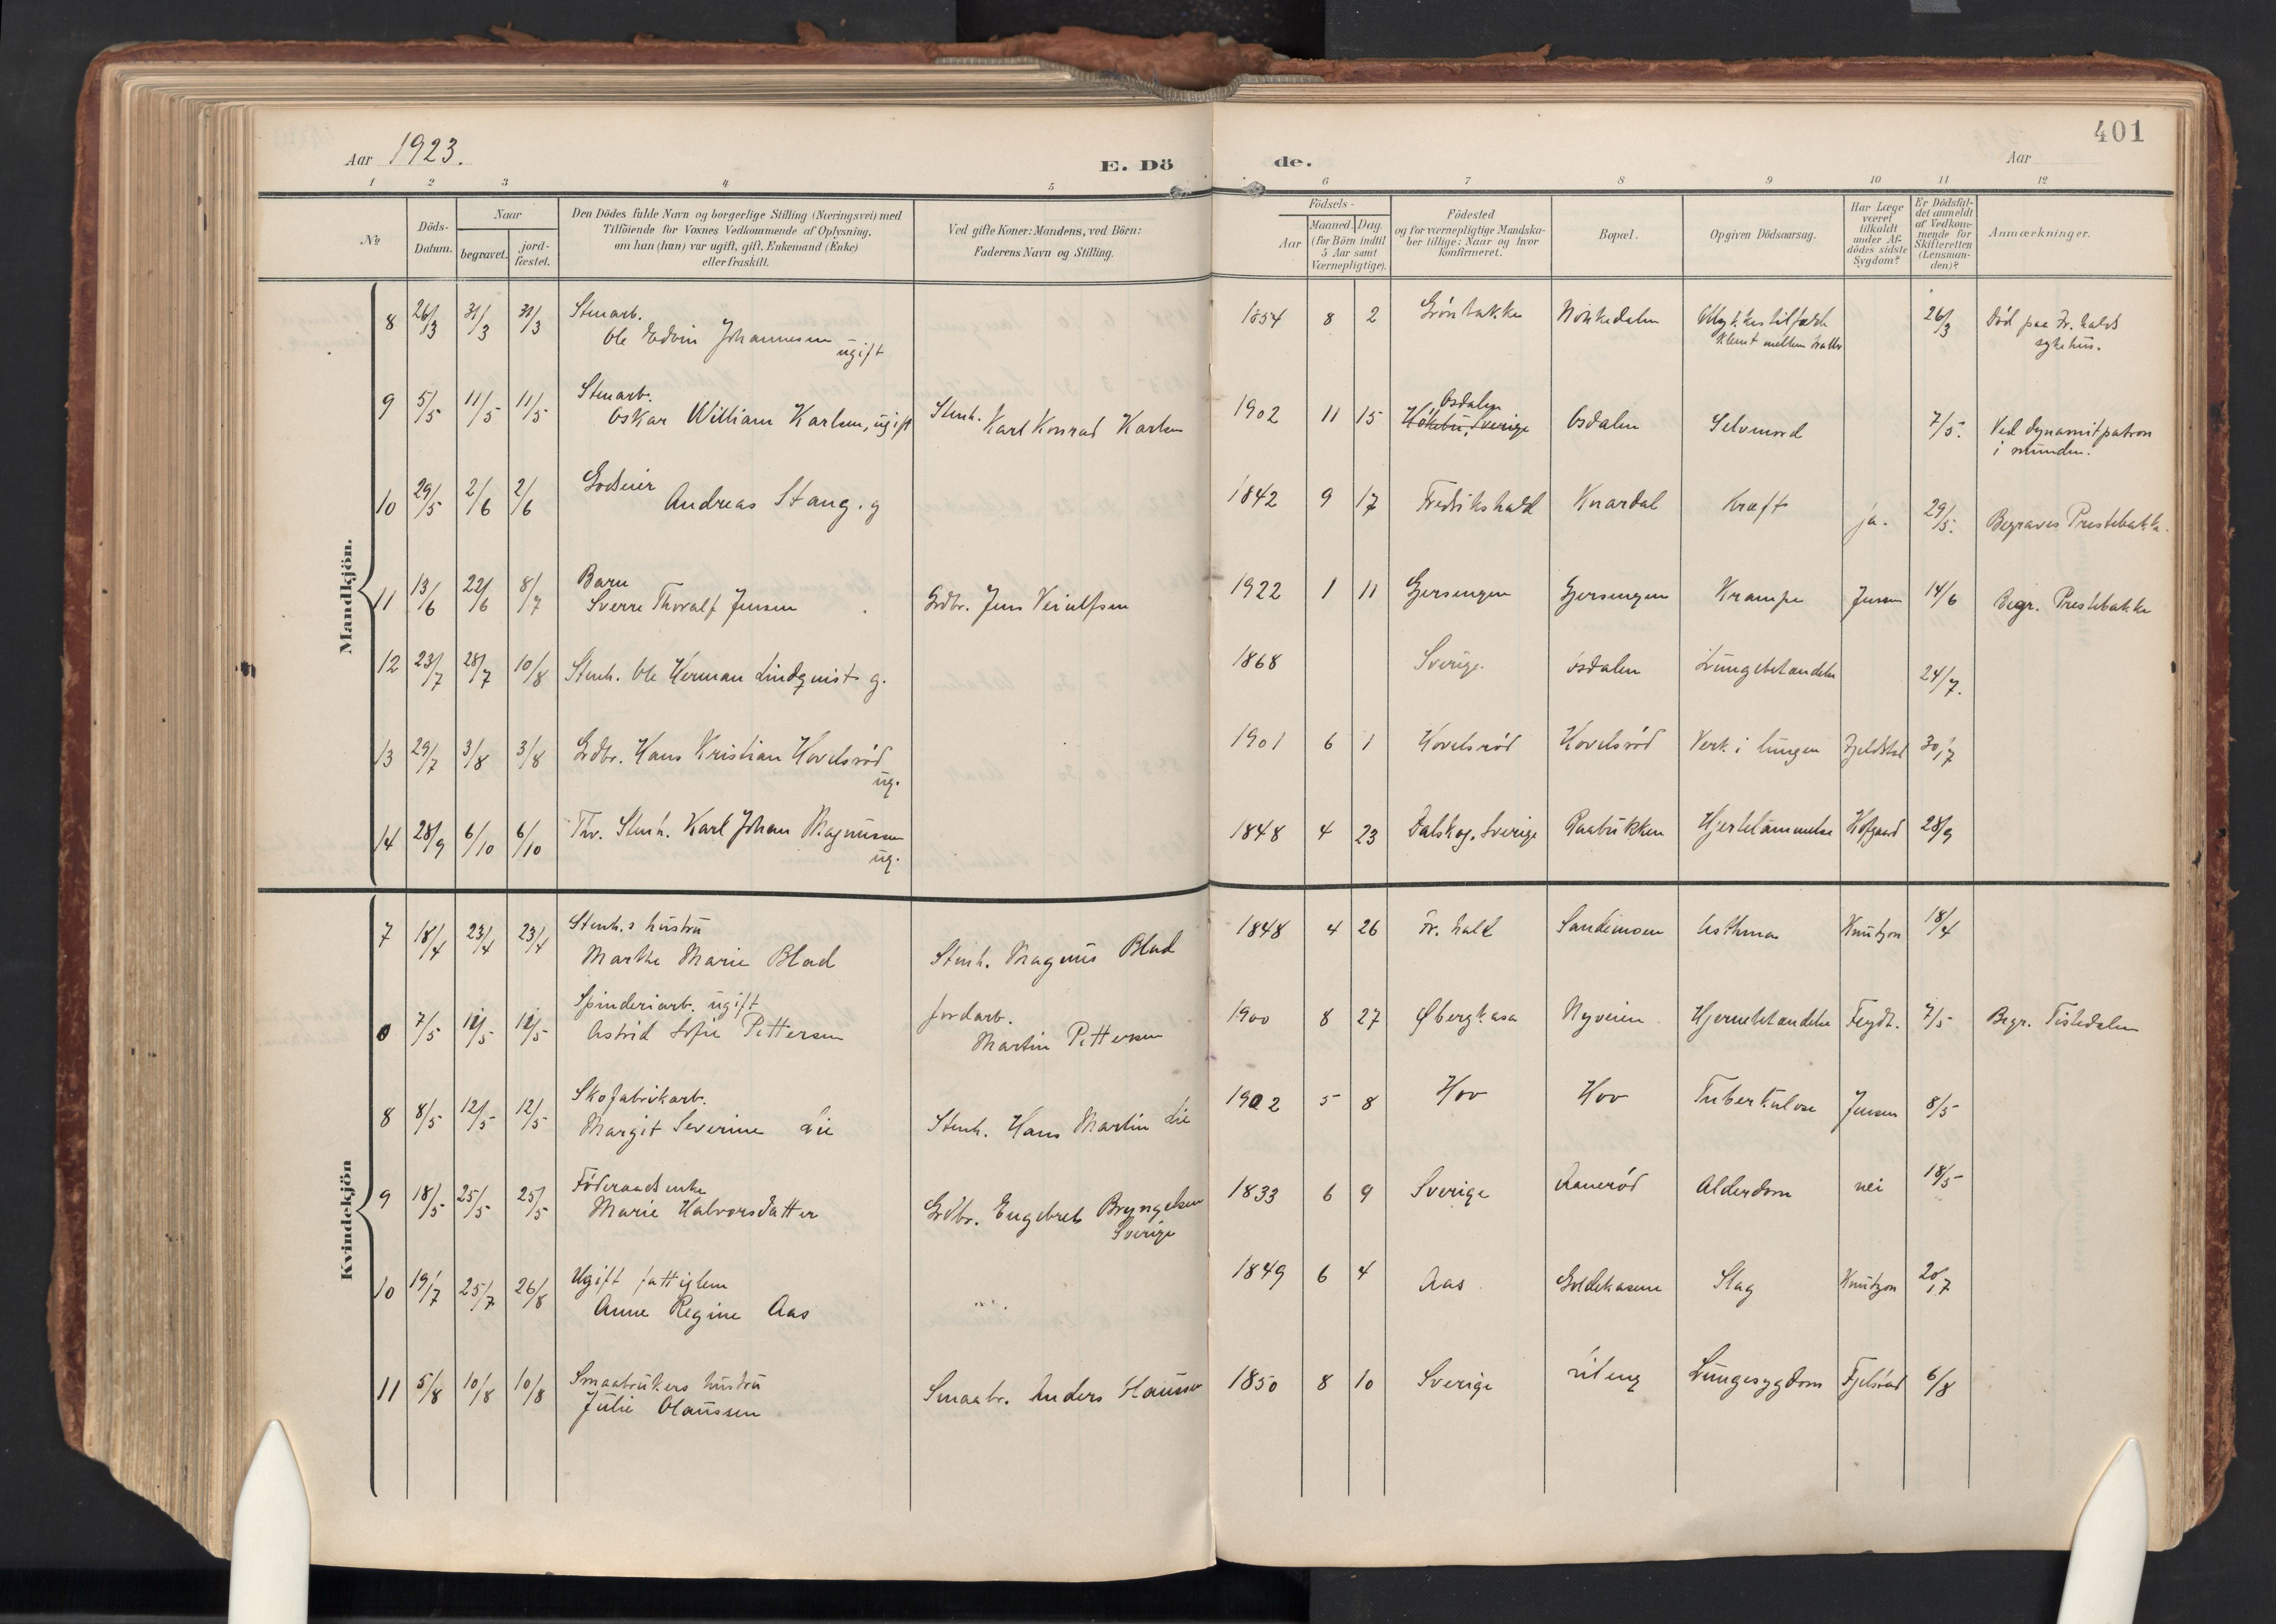 401
Aar 1923.
E. Dö de.
Aar
1 2 3 4 5 6 7 8 9 10 11 12
No
Döds-Datum.
Naar
begravet.
jord-fæstet.
Den Dödes fulde Navn og borgerlige Stilling (Næringsvei) med
Tilföiende for Voxnes Vedkommende af Oplysning,
om han (hun) var ugift, gift, Enkemand (Enke)
eller fraskilt.
Ved gifte Koner: Mandens, ved Börn:
Faderens Navn og Stilling.
Födsels-
Aar
Maaned. Dag.
(for Börn indtil
5 Aar samt
Værnepligtige).
Födested
og for værnepligtige Mandska-
ber tillige: Naar og hvor
Konfirmeret.
Bopæl.
Opgiven Dödsaarsag.
Har Læge
været
tilkaldt
under Af-
dödes sidste
Sygdom?
Er Dödsfal-
det anmeldt
af Vedkom-
mende for
Skifteretten
(Lensman-
den)?
Anmærkninger.
Mandkjön.
8 26/3 31/3 31/3 Stenarb.
Ole Edvin Johannesen ugift
1854 8 2 Grönbakke Nönkedalen Ulykkestilfælde
Klemt mellem 26/3 Död paa Fr.halds
sykehus.
9 5/5 11/5 11/5 Stenarb.
Oskar William Karlsen, ugift Stenh. Karl Konrad Karlsen
1902 11 15 Osdalen
Hökebu, Sverige Osdalen Selvmord 7/5. Ved dynamitpatron
i munden.
10 29/5 2/6 2/6 Godseier
Andreas Stang. g
1842 9 17 Fredrikshald Knardal Kræft ja. 29/5. Begraves Prestebakke.
11 13/6 22/6 8/7 Barn
Sverre Thoralf Jensen Grdbr. Jens Veiulfsen
1922 1 11 Gjersengen Gjersengen Krampe Jensen 14/6 Begr. Prestebakke
12 23/7 28/7 10/8 Stenh. Ole Herman Lindqvist g.
1868 Sverige Osdalen Lungebetændelse 24/7.
13 29/7 3/8 3/8 Grdbr. Hans Kristian Hovelsröd
ug.
1901 6 1 Hovelsröd Hovelsröd Verk i lungen Fjeldstad 30/7
14 28/9 6/10 6/10 Fhv. Stenh. Karl Johan Magnussen
ug.
1848 4 23 Dalskog, Sverige Raabukken Hjertelammelse Hofgaard 28/9
Kvindekjön
7 18/4 23/4 23/4 Stenh.s hustru
Marthe Marie Blad Stenh. Magnus Blad
1848 4 26 Fr.hald Sandemoen Asthma Knutzon 18/4
0 7/5 12/5 12/5 Spinderiarb. ugift
Astrid Sofie Pettersen Jordarb.
Martin Pettersen
1900 8 27 Øbergkasa Nyveien Hjernebetændelse Feydt. 7/5 Begr. Tistedalen
8 8/5 12/5 12/5 Skofabrikarb.
Margit Severine Lie Stenh. Hans Martin Lie
1902 5 8 Hov Hov Tuberkulose Jensen 8/5
9 18/5 25/5 25/5 Föderaadsenke
Marie Halvorsdatter Grdbr. Engebret Bryngelsen
Sverige
1833 6 9 Sverige Aaneröd Alderdom nei 18/5
10 19/7 25/7 26/8 Ugift fattiglem
Anne Regine Aas
1849 6 4 Aas Goldekasene Slag Knutzon 20/7
11 5/8 10/8 10/8 Smaabrukers hustru
Julie Olaussen Smaabr. Anders Olaussen
1850 8 10 Sverige Uteng Lungesygdom Fjelstad 6/8